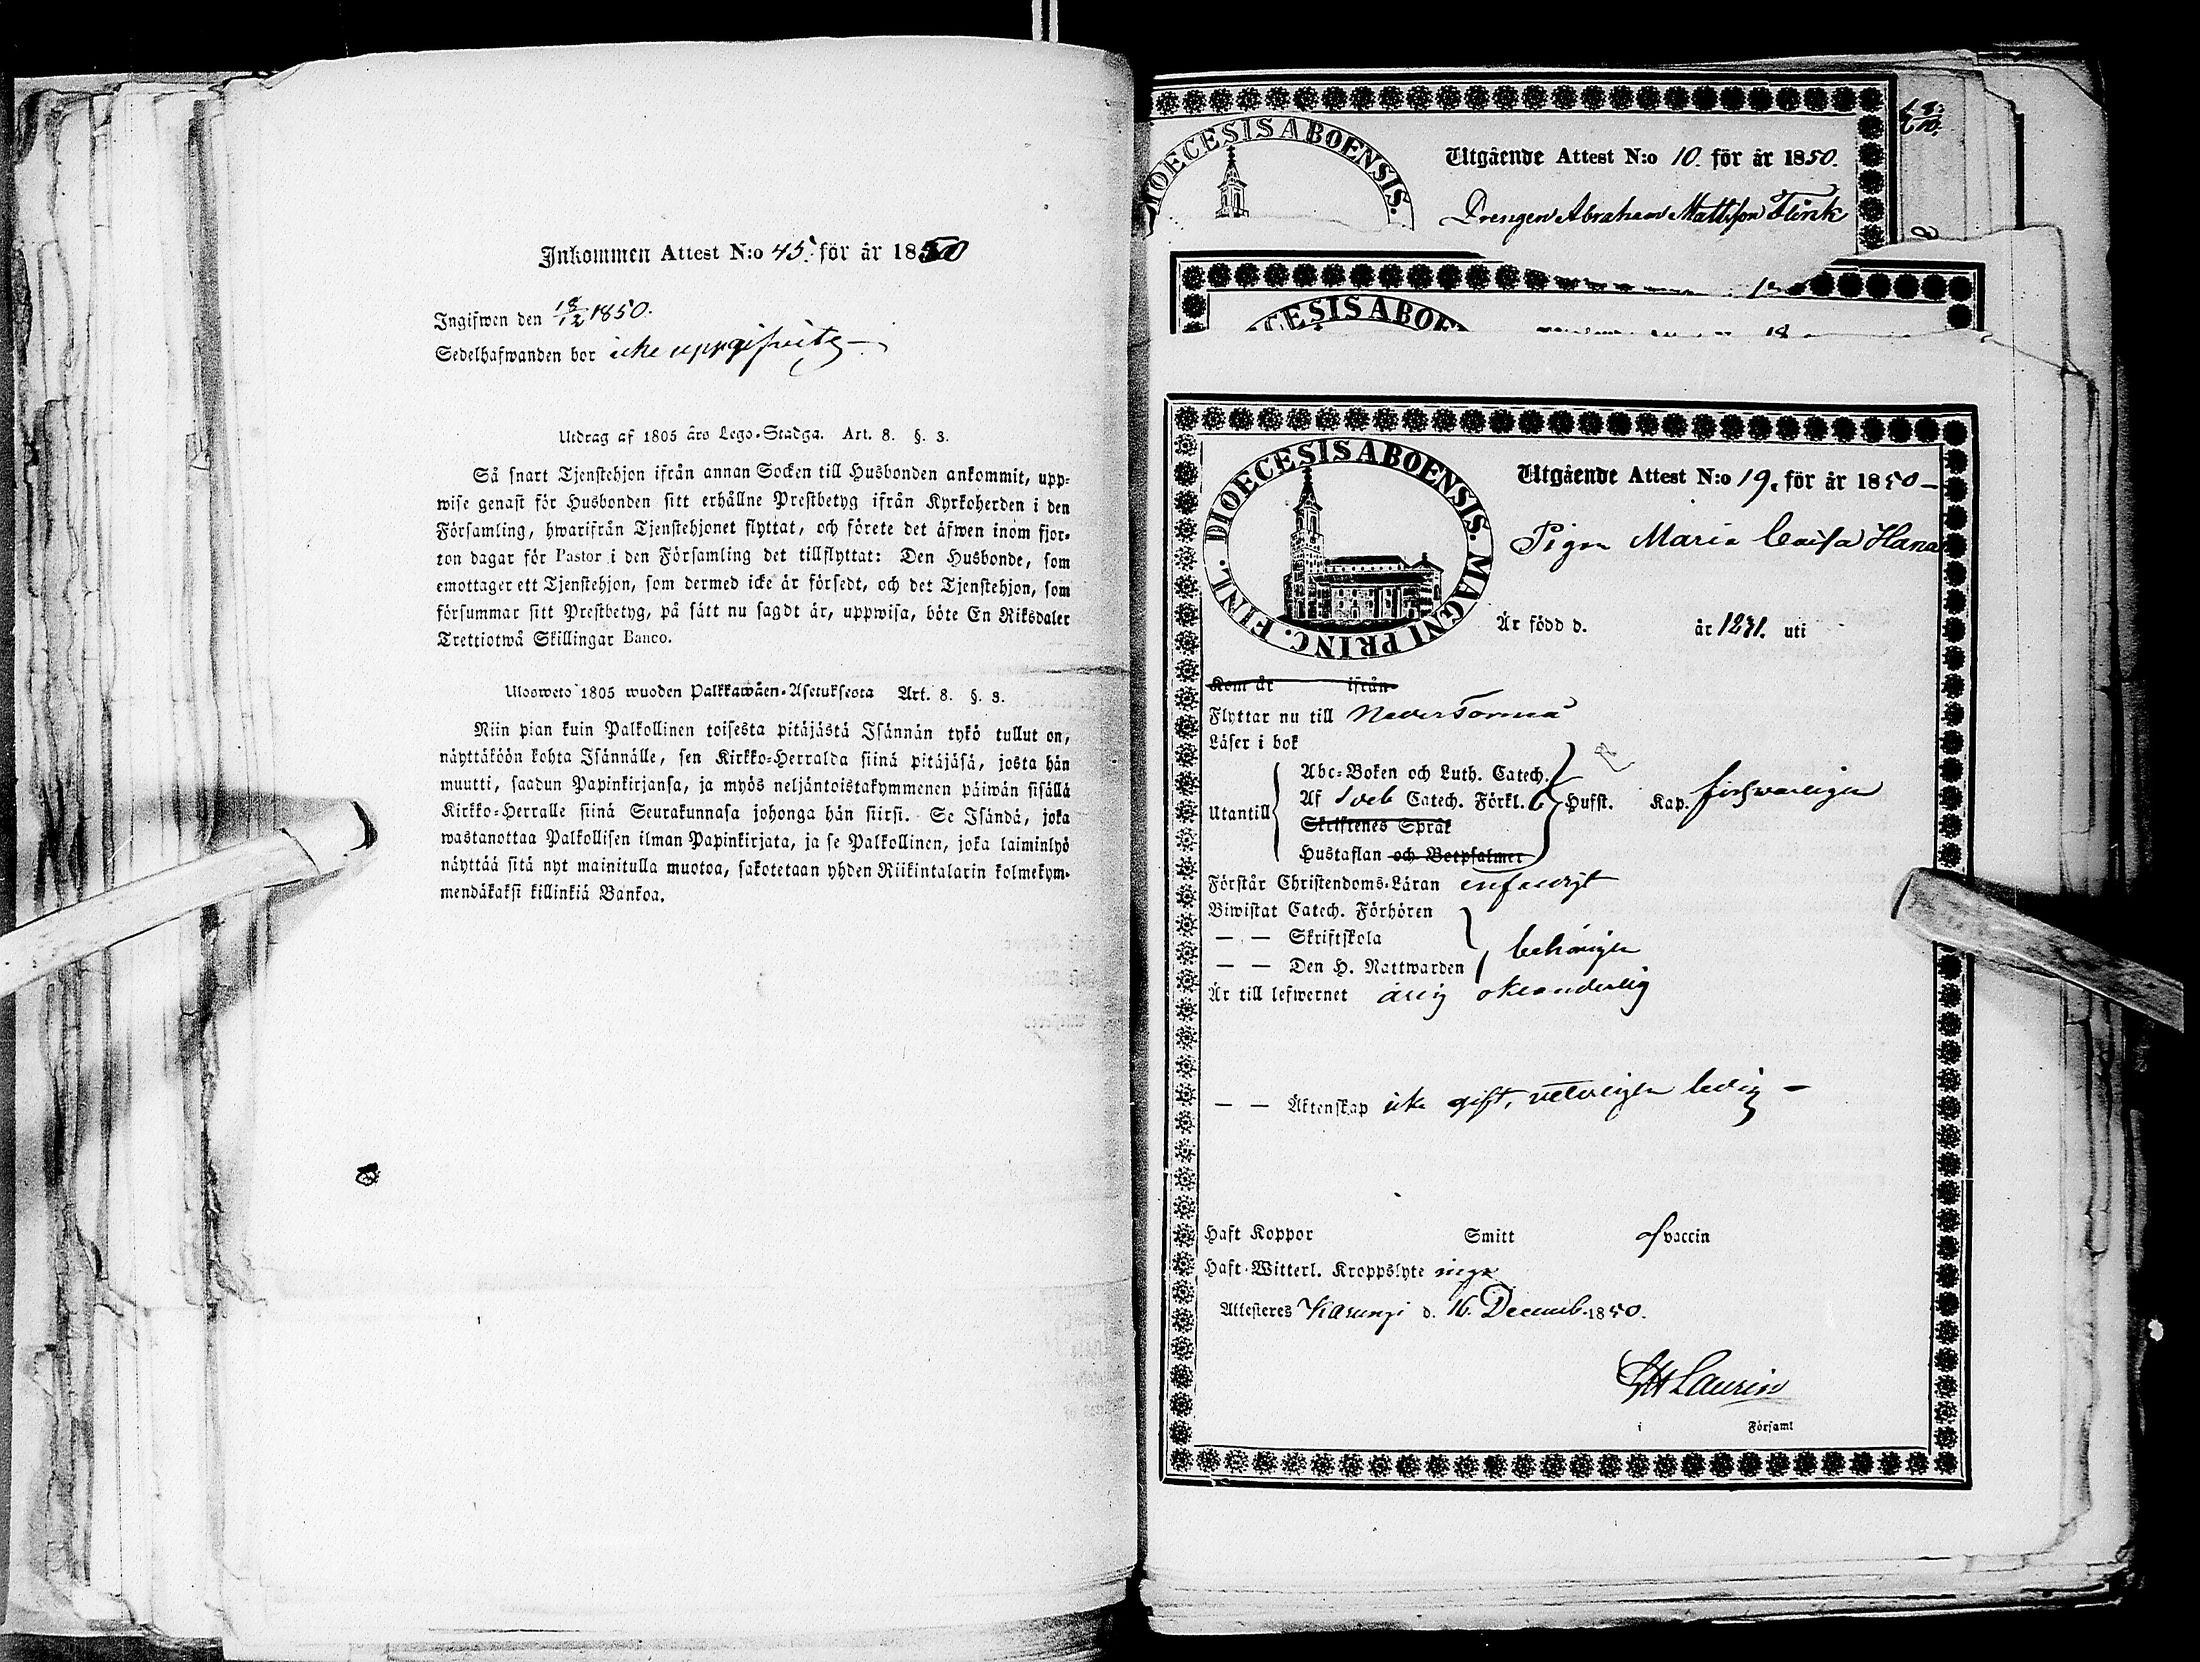 Inkommen Attest N:o 45. för år 1850
Ingifwen den 18/12 1850.
Sedelhafwanden bor icke uppgifvit
Utdrag af 1805 års Lego-Stadga. Art. 8. §. 3.
Så snart Tjenstehjon ifrån annan Socken till Husbonden ankommit, upp-
wise genast för Husbonden sitt erhållne Prestbetyg ifrån Kyrkoherden i den
Församling, hwarifrån Tjenstehjonet flyttat, och förete det äfwen inom fjor-
ton dagar för Pastor i den Församling det tillflyttat: Den Husbonde, som
emottager ett Tjenstehjon, som dermed icke är försedt, och det Tjenstehjon, som
försummar sitt Prestbetyg, på sätt nu sagdt är, uppwisa, böte En Riksdaler
Trettiotwå Skillingar Banco.
Ulosweto 1805 wuoden Palkkawäen-Asetuksesta Art. 8. §. 3.
Niin pian kuin Palkollinen toisesta pitäjästä Isännän tykö tullut on,
näyttäköön kohta Isännälle, sen Kirkko-Herralda siinä pitäjäsä, josta hän
muutti, saadun Papinkirjansa, ja myös neljäntoistakymmenen päiwän sisällä
Kirkko-Herralle siinä Seurakunnasa johonga hän siirsi. Se Isändä, joka
wastanottaa Palkollisen ilman Papinkirjata, ja se Palkollinen, joka laiminlyö
näyttää sitä nyt mainitulla muotoa, sakotetaan yhden Riikintalarin kolmekym-
mendäkaksi killinkiä Bankoa.
DIOECESIS ABOENSIS.
Utgående Attest N:o 10. för år 1850.
Drengen Abraham Mattsson Flink
DIOECESIS ABOENSIS. MAGNI PRINC. FINL.
Utgående Attest N:o 19. för år 1850
Pigan Maria Caisa Hana
Är född d. år 1831. uti
Kom år ifrån
Flyttar nu till Neder Torneå
Läser i bok
Utantill
Abc-Boken och Luth. Catech.
Af Sveb Catech. Förkl. Hufst. Kap. försvarligen
Skriftenes Språk
Hustaflan och Botpsalmer
Förstår Christendoms-Läran enfaldigt
Biwistat Catech. Förhören
— — Skriftskola
— — Den H. Nattwarden behörigen
Är till lefwernet ärlig oklanderlig
— — Äktenskap icke gift, ledig
Haft Koppor Smitt af vaccin
Haft Witterl. Kroppslyte inga
Attesteres Karungi d. 16. Decemb. 1850.
Laurin
i Församl